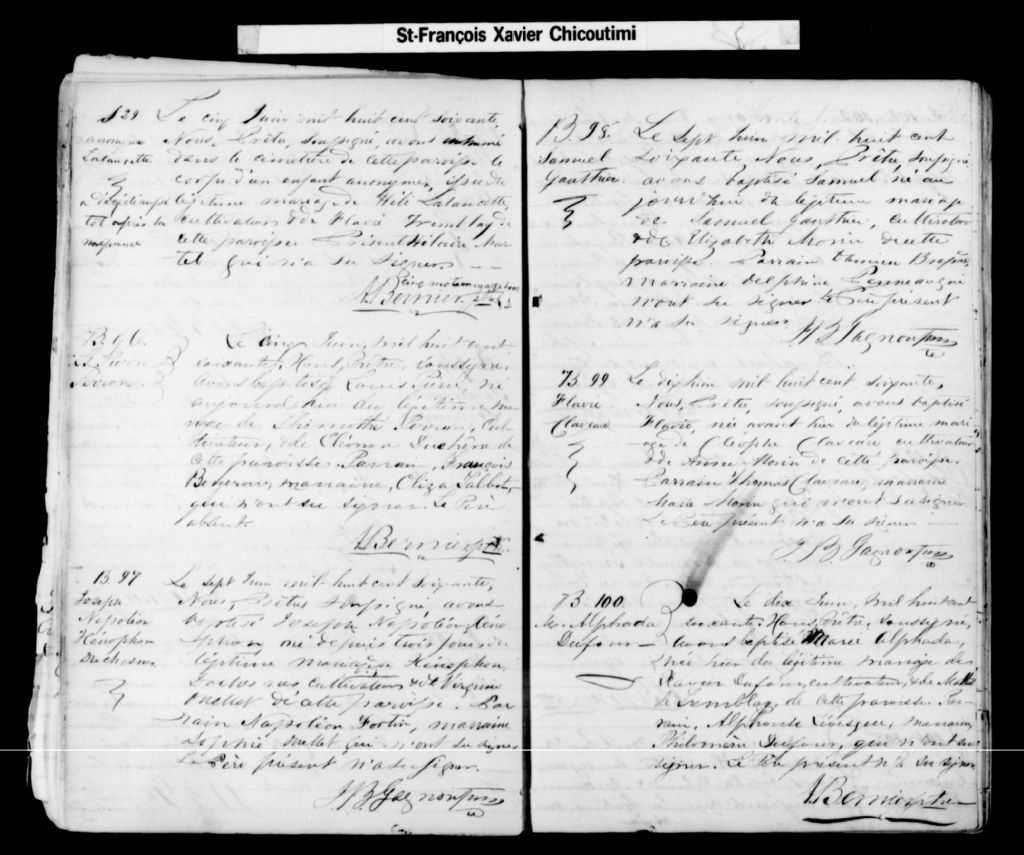 St-François Xavier Chicoutimi
S 29
anonyme
Lalancette
a décédé
tôt après sa
naissance
Le cinq Juin mil huit cent soixante,
Nous, Prêtre, soussigné, avons inhumé
dans le cimetière de cette paroisse le
corps d'un enfant anonyme, issu du
légitime mariage de Lalancette
cultivateur & de Flavie Tremblay de
cette paroisse. Présent Hilaire Mar
tel qui n'a su signer.
cinq mots
A. Bernier Ptre
B. 96.
Le cinq Juin, mil huit cent
soixante, Nous, Prêtre, soussigné,
avons baptisé Louis né
aujourd'hui du légitime ma
riage de Thimothé cul
tivateur, & de Eléonore Duchesne de
cette paroisse. Parrain, François
marraine, Eliza Talbot,
qui n'ont su signer. Le Père
absent.
A. Bernier ptre
B. 97
Joseph
Napoléon
Xénophon
Duchesne
Le sept Juin mil huit cent soixante,
Nous, Prêtre soussigné, avons
baptisé Joseph Napoléon Xéno
phon né depuis trois jours du
légitime mariage Xénophon
cultivateur & de Virginie
Ouellet de cette paroisse. Par
rain Napoléon Fortin, marraine
Sophie qui n'ont su signer
Le Père présent n'a su signer.
J. B. Gagnon ptre
B. 98.
Samuel
Gauthier.
Le sept Juin mil huit cent
soixante, Nous, Prêtre, soussigné
avons baptisé Samuel né au
jourd'hui du légitime mariage
de Samuel Gauthier, cultivateur
& de Elizabeth Morin de cette
paroisse. Parrain Damien
marraine Delphine
n'ont su signer le Père présent
n'a su signer.
J. B. Gagnon ptre
B. 99
Flavie
Claveau
Le dix Juin mil huit cent soixante,
Nous, Prêtre, soussigné, avons baptisé
Flavie, née avant hier du légitime mari
age de Cléophe Claveau cultivateur
& de Anne Morin de cette paroisse.
Parrain Thomas Claveau, marraine
Marie Morin qui n'ont su signer
Le Père présent n'a su signer
J. B. Gagnon ptre
B. 100.
M. Alphada
Dufour
Le dix Juin, mil huit cent
soixante, Nous, Prêtre, soussigné,
avons baptisé Marie Alphada,
née hier du légitime mariage de
Xavier Dufour, cultivateur, & de
Tremblay de cette paroisse. Par
rain, Alphonse Lévesque, marraine
Philomène Dufour, qui n'ont su
signer. Le Père présent n'a su signer
A. Bernier ptre